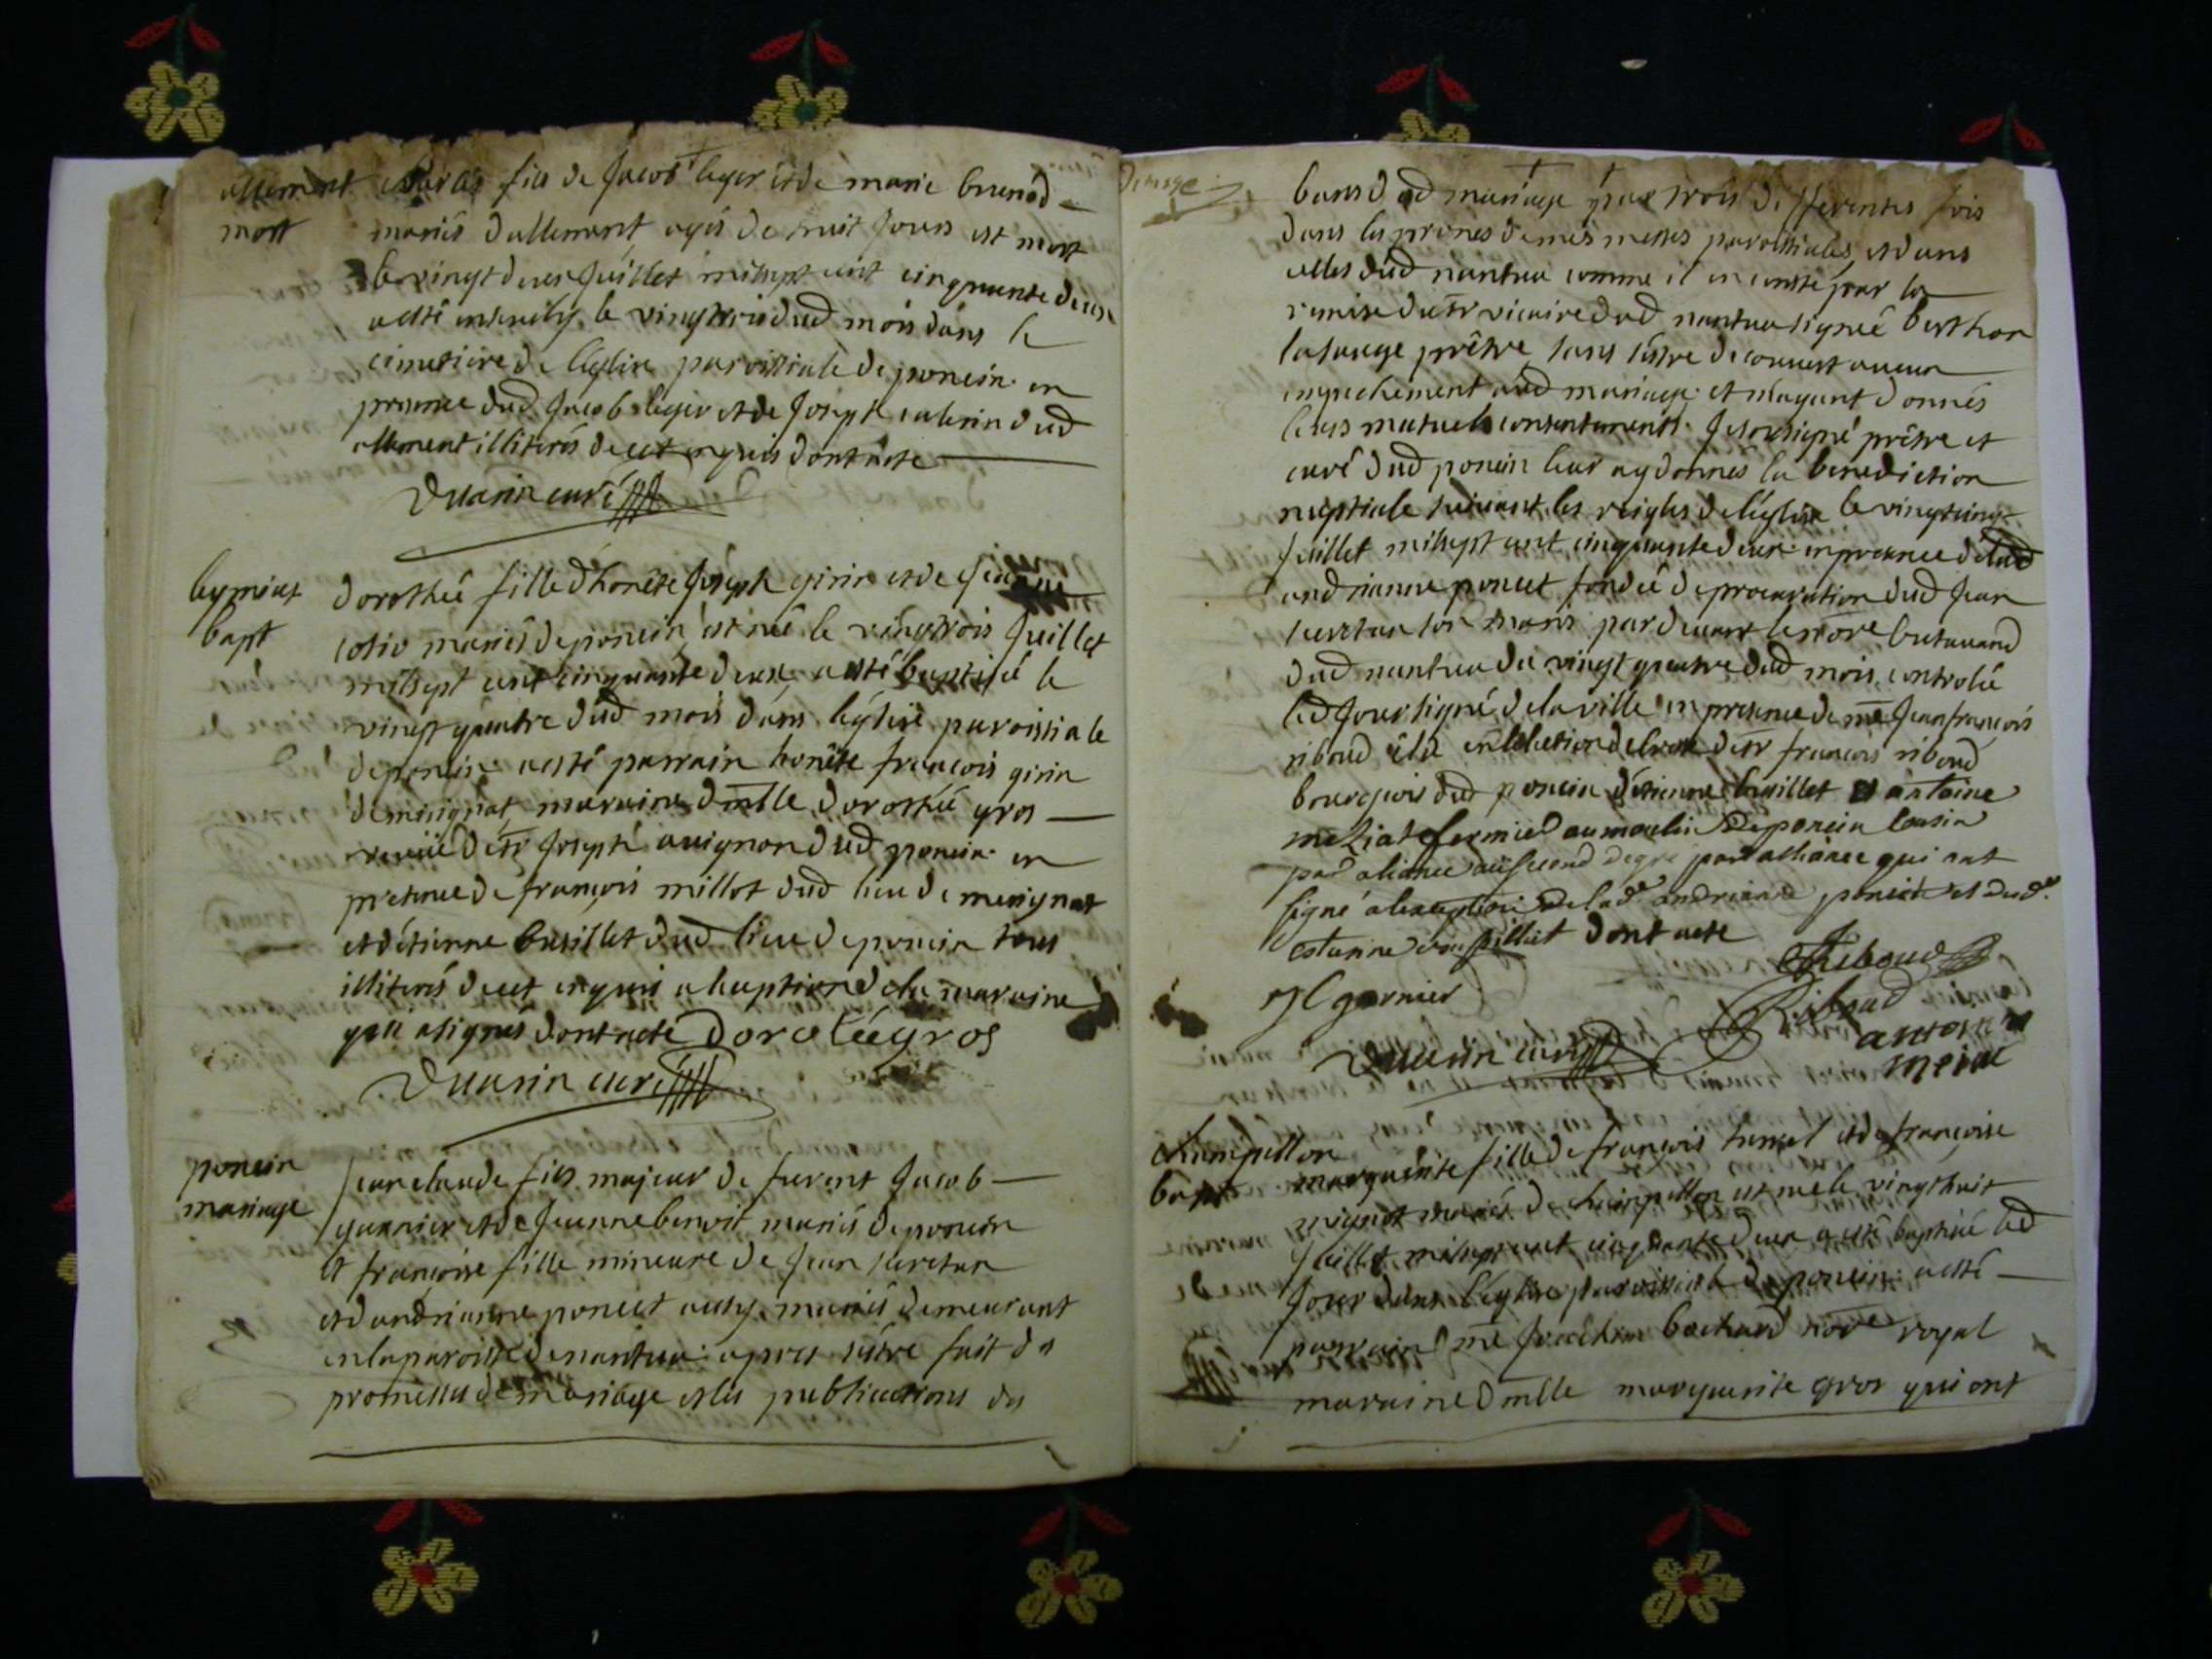 allement
mort
charles fils de Jacob leger et de marie brunod
mariés d'allement, agés de huit Jours est mort
le vingt deux Juillet mil sept cent cinquante deux
a esté ensevely le vingt trois dud mois dans le
cimetiere de l'eglise paroissiale de poncin en
presence dud Jacob leger et de Joseph dud
allement illiterés de cet enquis dont acte
Duarin curé
leymiat
bapt
dorothée fille d'honête Joseph girin et de
cotio mariés de poncin, est née le vingt trois Juillet
mil sept cent cinquante deux, a esté baptisée le
vingt quatre dud mois dans l'église paroissiale
de poncin a esté parrain honête françois girin
de marraine dmlle dorothée gros
veuve de sr Joseph avignon dud poncin en
presence de françois millot dud lieu de merignat
et d'étienne busillet dud lieu de poncin tous
illiterés de cet enquis a l'exeption de la maraine
qui a signés dont acte Dorotée gros
Duarin curé
poncin
mariage
Jean claude fils majeur de furent Jacob
guarnier et de Jeanne benoit mariés de poncin
et françoise fille mineure de Jean
et d'andrianne poncet aussy mariés demeurant
en la paroisse de nantua apres s'estre fait des
promesses de mariage et les publications des
bans dud mariage par trois differentes fois
dans les prones de mes messes paroissiales et dans
celles dud nantua comme il en consté par la
remise du sr vicaire dud nantua signée berthon
prêtre sans s'estre decouvert aucun
empechement aud mariage et m'ayant donnés
leurs mutuels consentements Je soussigné prêtre et
curé dud poncin leur ay donnés la benediction
nuptiale suivant les reigles de l'église le vingt cinq
Juillet mil sept cent cinquante deux en presence de lad
andrianne poncet fondée de procuration dud Jean
son maris par devant le nore
dud nantua du vingt quatre dud mois controlée
led Jour signé delaville en presence de me Jean françois
riboud élu en l'élection de de sr françois riboud
bourgeois dud poncin d'étienne busillet et antoine
meziat fermier au moulin de poncin cousin
par aliance au second degré par alliance qui ont
signé a l'exeption de lade andrianne poncet et dud
estienne dont acte
Riboud
J C garnier
Riboud
antoine
meziat
Duarin curé
champillon
bapt
marguerite fille de françois et de françoise
mignot mariés de champillon est née le vingt huit
Juillet mil sept cent cinquante deux a esté baptisée led
Jour dans l'église paroissiale de poncin a esté
parrain me Joachim bochard nore royal
maraine dmlle marguerite gros qui ont